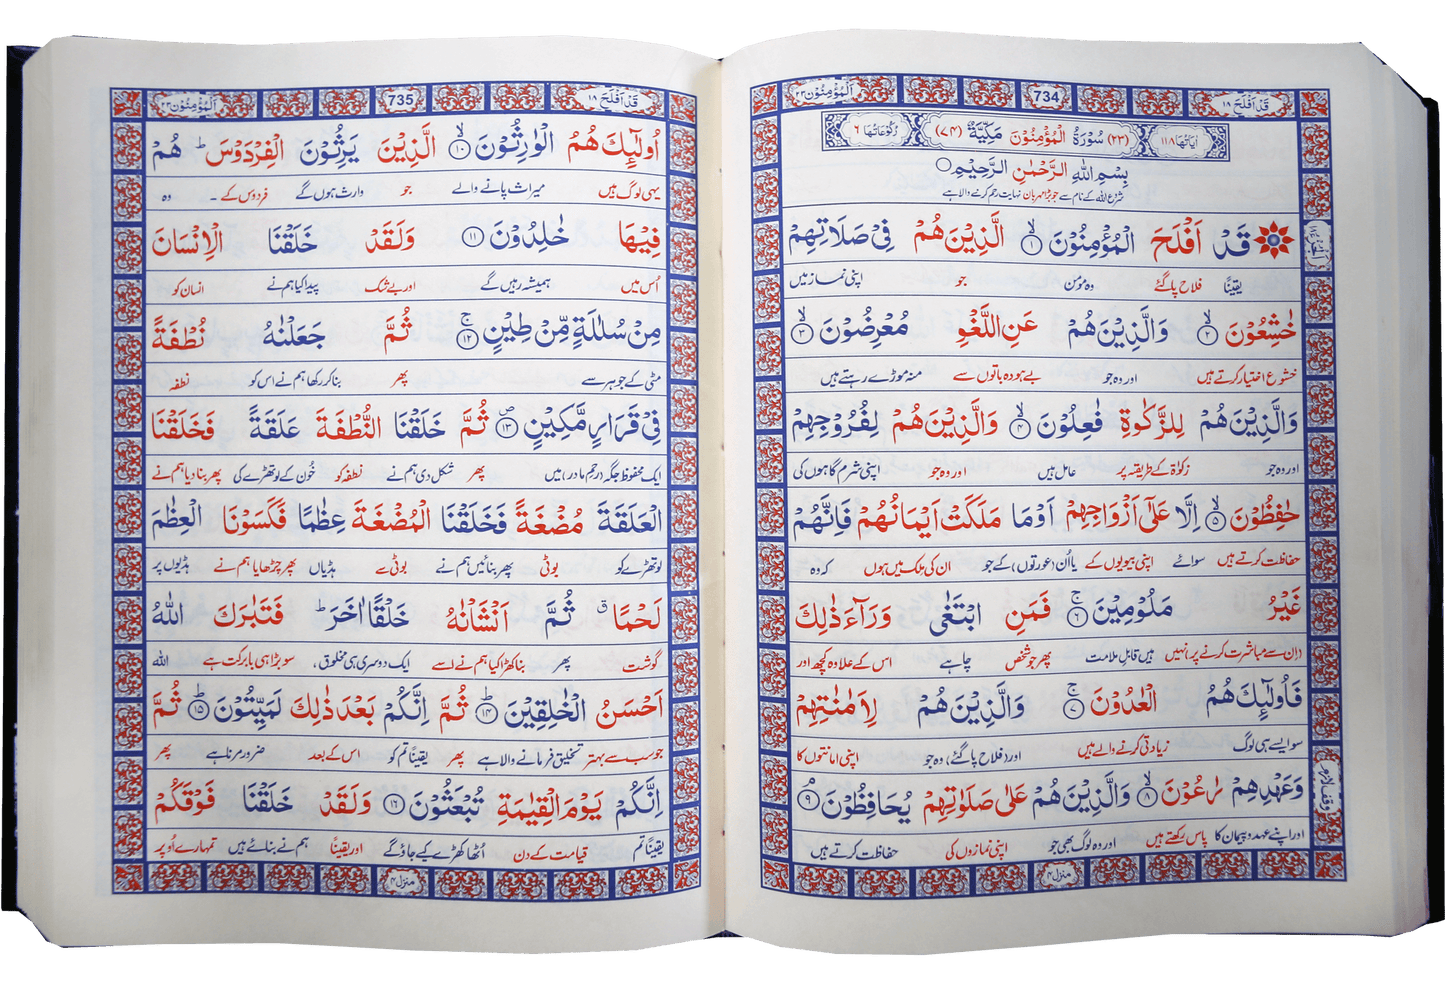 قَدْ اَفْلَحَ ١٨
734
اَلْمُؤْمِنُوْن ٢٣
اٰيَاتُهَا ١١٨
(٢٣) سُوْرَةُ الْمُؤْمِنُوْنَ مَكِّيَّةٌ (٧٤)
رُكُوْعَاتُهَا ٦
بِسْمِ اللّٰهِ الرَّحْمٰنِ الرَّحِيْمِ
شروع اللہ کے نام سے جو بڑا مہربان نہایت رحم کرنے والا ہے
قَدْ اَفْلَحَ الْمُؤْمِنُوْنَ ۙ﴿١﴾ الَّذِيْنَ هُمْ فِيْ صَلَاتِهِمْ
یقیناً فلاح پا گئے وہ مومن جو اپنی نماز میں
خٰشِعُوْنَ ۙ﴿٢﴾ وَالَّذِيْنَ هُمْ عَنِ اللَّغْوِ مُعْرِضُوْنَ ۙ﴿٣﴾
خشوع اختیار کرتے ہیں اور وہ جو بے ہودہ باتوں سے منہ موڑے رہتے ہیں
وَالَّذِيْنَ هُمْ لِلزَّكٰوةِ فٰعِلُوْنَ ۙ﴿٤﴾ وَالَّذِيْنَ هُمْ لِفُرُوْجِهِمْ
اور وہ جو زکوٰۃ کے طریقہ پر عامل ہیں اور وہ جو اپنی شرم گاہوں کی
حٰفِظُوْنَ ۙ﴿٥﴾ اِلَّا عَلٰٓى اَزْوَاجِهِمْ اَوْ مَا مَلَكَتْ اَيْمَانُهُمْ فَاِنَّهُمْ
حفاظت کرتے ہیں سوائے اپنی بیویوں کے یا اُن (عورتوں) کے جو ان کی مِلک میں ہوں کہ وہ
غَيْرُ مَلُوْمِيْنَ ۚ﴿٦﴾ فَمَنِ ابْتَغٰى وَرَآءَ ذٰلِكَ
(ان سے مباشرت کرنے پر) نہیں ہیں قابلِ ملامت پھر جو شخص چاہے اس کے علاوہ کچھ اور
فَاُولٰٓئِكَ هُمُ الْعٰدُوْنَ ۚ﴿٧﴾ وَالَّذِيْنَ هُمْ لِاَمٰنٰتِهِمْ
سو ایسے ہی لوگ زیادتی کرنے والے ہیں اور (فلاح پا گئے) وہ جو اپنی امانتوں کا
وَعَهْدِهِمْ رٰعُوْنَ ۙ﴿٨﴾ وَالَّذِيْنَ هُمْ عَلٰى صَلَوٰتِهِمْ يُحَافِظُوْنَ ۘ﴿٩﴾
اور اپنے عہد و پیمان کا پاس رکھتے ہیں اور وہ لوگ بھی جو اپنی نمازوں کی حفاظت کرتے ہیں
وقف لازم
منزل ٤
قَدْ اَفْلَحَ ١٨
735
اَلْمُؤْمِنُوْن ٢٣
اُولٰٓئِكَ هُمُ الْوٰرِثُوْنَ ۙ﴿١٠﴾ الَّذِيْنَ يَرِثُوْنَ الْفِرْدَوْسَ ؕ هُمْ
یہی لوگ ہیں میراث پانے والے جو وارث ہوں گے فردوس کے ۔ وہ
فِيْهَا خٰلِدُوْنَ ﴿١١﴾ وَلَقَدْ خَلَقْنَا الْاِنْسَانَ
اُس میں ہمیشہ رہیں گے اور بے شک پیدا کیا ہم نے انسان کو
مِنْ سُلٰلَةٍ مِّنْ طِيْنٍ ۚ﴿١٢﴾ ثُمَّ جَعَلْنٰهُ نُطْفَةً
مٹی کے جوہر سے پھر بنا کر رکھا ہم نے اس کو نطفہ
فِيْ قَرَارٍ مَّكِيْنٍ ۖ﴿١٣﴾ ثُمَّ خَلَقْنَا النُّطْفَةَ عَلَقَةً فَخَلَقْنَا
ایک محفوظ جگہ (رحمِ مادر) میں پھر شکل دی ہم نے نطفہ کو خُون کے لوتھڑے کی پھر بنا دیا ہم نے
الْعَلَقَةَ مُضْغَةً فَخَلَقْنَا الْمُضْغَةَ عِظٰمًا فَكَسَوْنَا الْعِظٰمَ
لوتھڑے کو بوٹی پھر بنائیں ہم نے بوٹی سے ہڈیاں پھر چڑھایا ہم نے ہڈیوں پر
لَحْمًا ۗ ثُمَّ اَنْشَاْنٰهُ خَلْقًا اٰخَرَ ؕ فَتَبٰرَكَ اللّٰهُ
گوشت پھر بنا کھڑا کیا ہم نے اسے ایک دوسری ہی مخلوق ، سو بڑا ہی بابرکت ہے اللہ
اَحْسَنُ الْخٰلِقِيْنَ ؕ﴿١٤﴾ ثُمَّ اِنَّكُمْ بَعْدَ ذٰلِكَ لَمَيِّتُوْنَ ؕ﴿١٥﴾ ثُمَّ
جو سب سے بہتر تخلیق فرمانے والا ہے پھر یقیناً تم کو اس کے بعد ضرور مرنا ہے پھر
اِنَّكُمْ يَوْمَ الْقِيٰمَةِ تُبْعَثُوْنَ ﴿١٦﴾ وَلَقَدْ خَلَقْنَا فَوْقَكُمْ
یقیناً تم قیامت کے دن اُٹھا کھڑے کیے جاؤ گے اور یقیناً ہم نے بنائے ہیں تمہارے اُوپر
منزل ٤